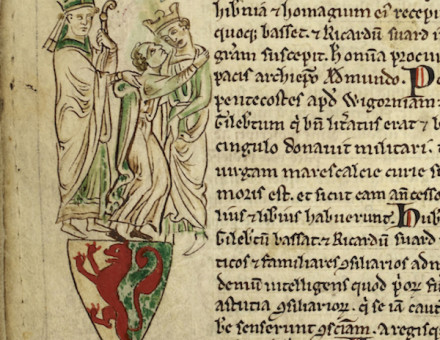 hibitūā ⁊ homagium ei' recepi
quoq; basset. ⁊ Ricardū suard i
gram suscepit. homīa procu
pacis archiepō Admundo. Po
pentecostes apḋ Wigorniam
Gileb'tum q̇ bn̄ litatus erat ⁊ b
cingulo donauit militari.
uirgam marescalcie curie s
moris est. et sicut eam ancesso
lius ⁊ libius habuerunt. hub
Gilebtū bassat. ⁊ Ricardū suard
ticos ⁊ familiares ꝯsiliarios adm
demū intelligens quod p̄or
astutia ꝯsiliarioꝝ. q̄ se iā caut
be senserunt ꝯsciam. A regisq